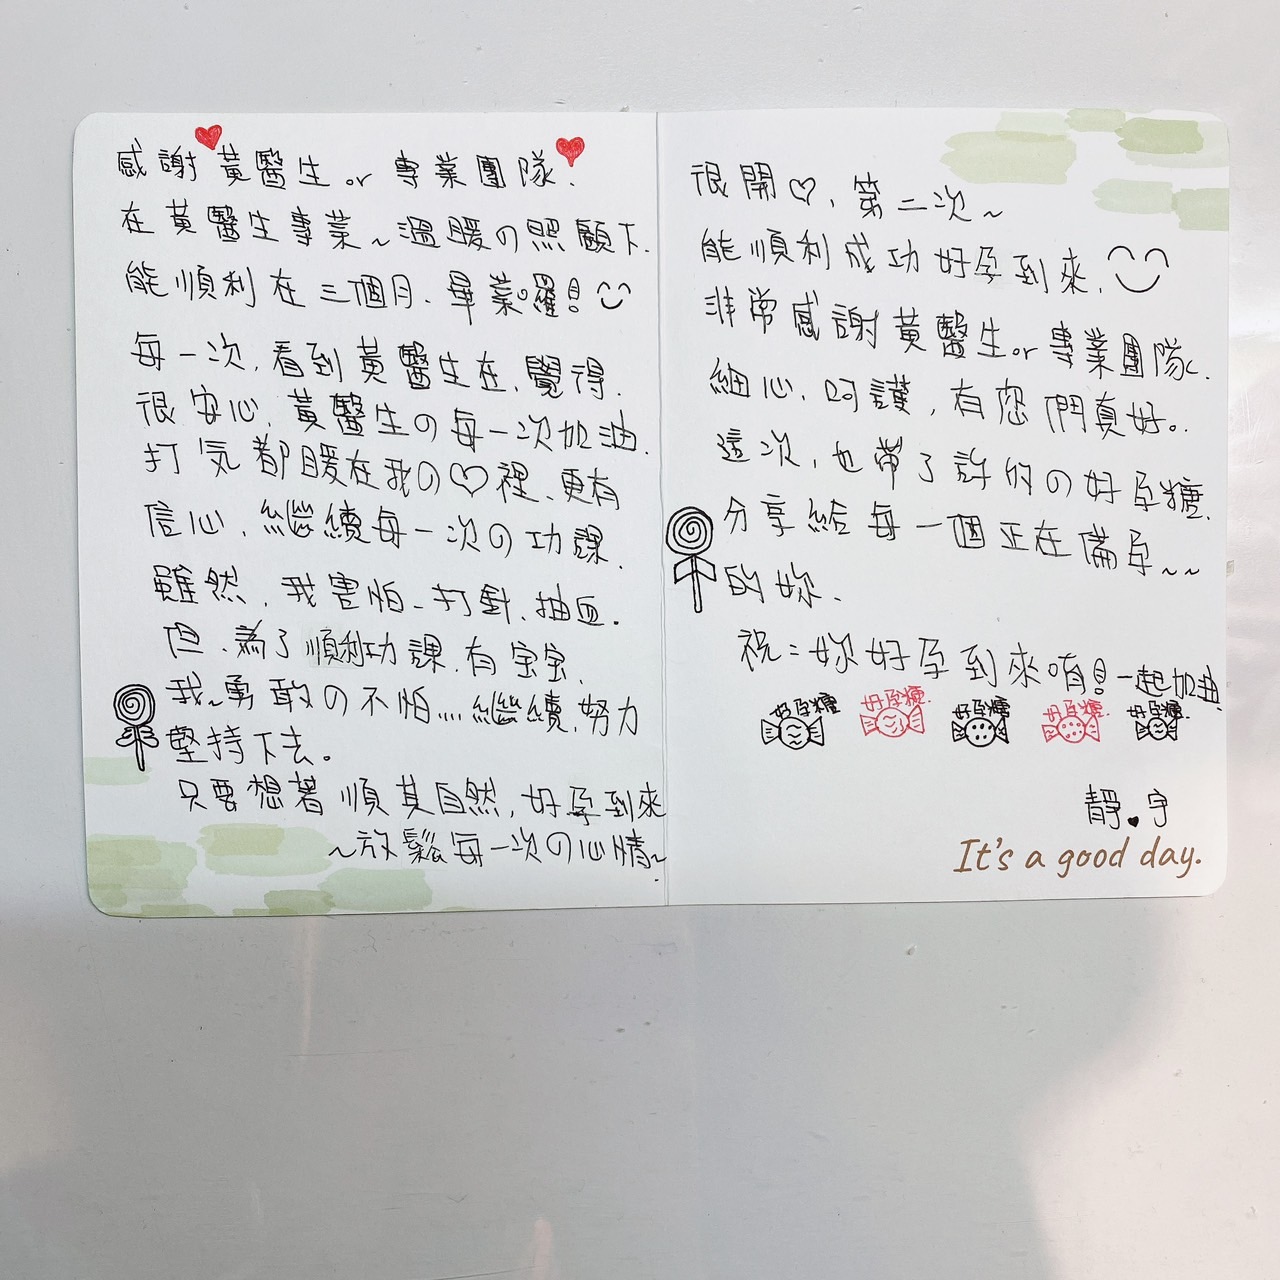 感謝 黃醫生 or 專業團隊.
在黃醫生專業~溫暖の照顧下.
能順利在三個月.畢業囉!
每一次.看到黃醫生在.覺得.
很安心.黃醫生の每一次加油.
打気都暖在我の♡裡.更有
信心.繼續每一次の功課.
雖然.我害怕-打針.抽血.
但.為了順利功課.有宝宝.
我~勇敢の不怕....繼續.努力
堅持下去。
只要想著順其自然,好孕到來
~放鬆每一次の心情~.
很開♡.第二次~
能順利成功好孕到來.
非常感謝黃醫生or專業團隊.
細心.呵護.有您們真好。.
這次.也帶了許的の好孕糖.
分享給每一個正在備孕~~
的妳.
祝:妳好孕到來唷!一起加油
好孕糖 好孕糖. 好孕糖 好孕糖. 好孕糖.
靜♥宇
It's a good day.